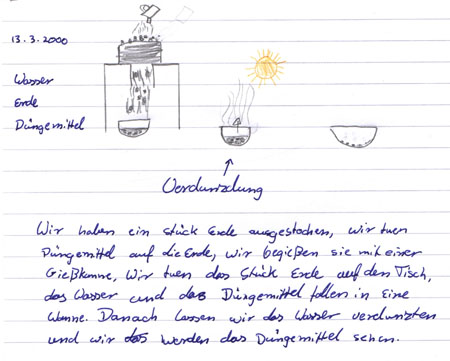 13.3.2000
Wasser
Erde
Düngemittel
Verdunzdung
Wir haben ein Stück Erde ausgestochen, wir tuen
Düngemittel auf die Erde, wir begießen sie mit einer
Gießkanne, Wir tuen das Stück Erde auf den Tisch,
das Wasser und das Düngemittel fallen in eine
Wanne. Danach lassen wir das Wasser verdunzten
und wir das werden das Düngemittel sehen.